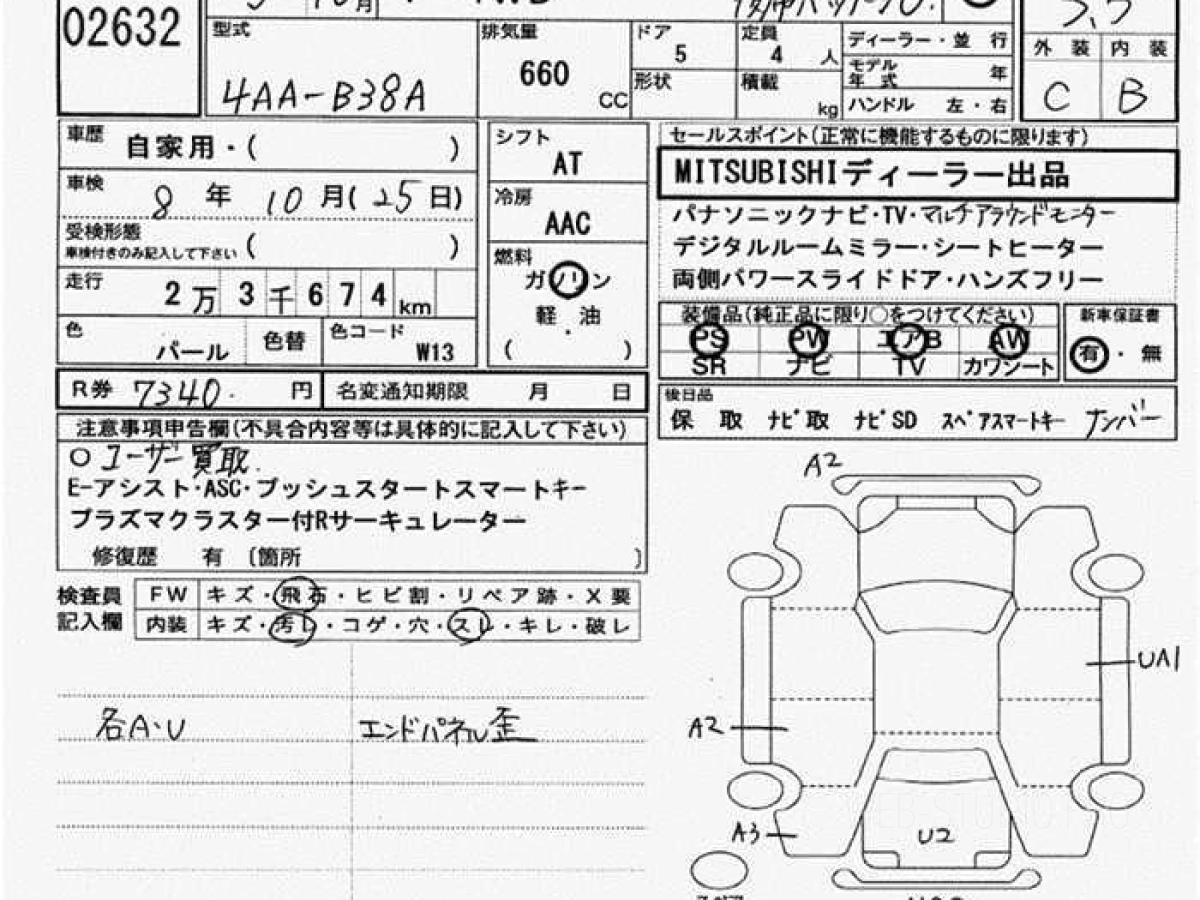 02632
型式
4AA-B38A
排気量
660
CC
ドア
5
形状
定員
4 人
積載
kg
ディーラー・並 行
モデル年式 年
ハンドル 左・右
外 装 内 装
C B
車歴
自家用・( )
車検
8 年 10 月(25日)
受検形態
車検付きのみ記入して下さい ( )
走行
2万3千674km
色
パール
色替
色コード
W13
シフト
AT
冷房
AAC
燃料
ガソリン
軽・油
( )
セールスポイント(正常に機能するものに限ります)
MITSUBISHIディーラー出品
パナソニックナビ・TV・マルチアラウンドモニター
デジタルルームミラー・シートヒーター
両側パワースライドドア・ハンズフリー
装備品(純正品に限り○をつけてください)
PS PW エアB AW
SR ナビ TV カワシート
新車保証書
有・無
R券 7340. 円
名変通知期限 月 日
後日品
保 取 ナビ取 ナビSD スペアスマートキー ナンバー
注意事項申告欄(不具合内容等は具体的に記入して下さい)
○ユーザー買取.
E-アシスト・ASC・プッシュスタートスマートキー
プラズマクラスター付Rサーキュレーター
修復歴 有 〔箇所 〕
検査員
記入欄
FW キズ・飛石・ヒビ割・リペア跡・X要
内装 キズ・汚レ・コゲ・穴・スレ・キレ・破レ
各A・U
エンドパネル歪
A2
UA1
A2
A3
U2